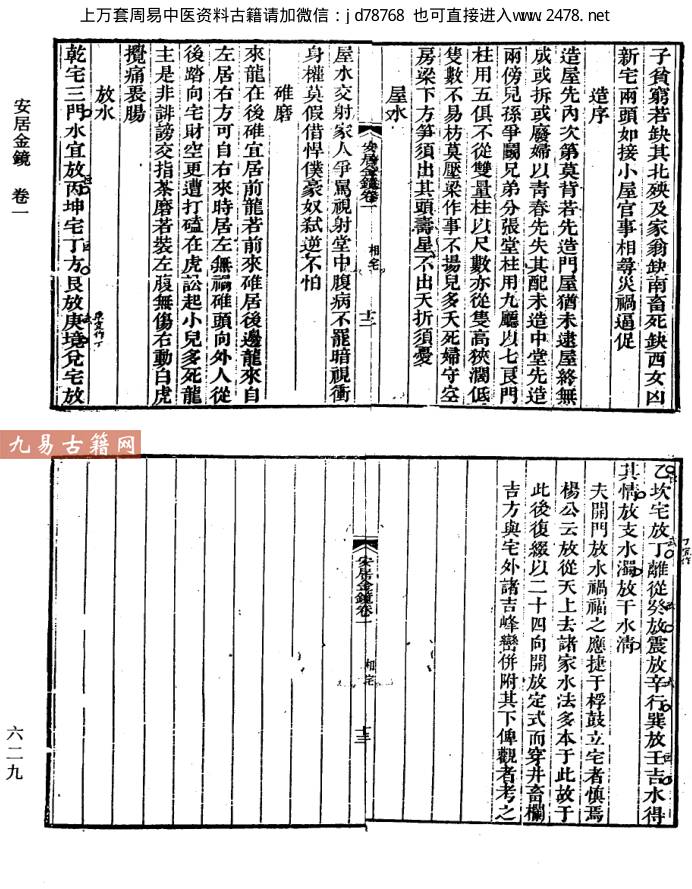 上万套周易中医资料古籍请加微信：jd78768 也可直接进入www.2478.net
安居金鏡 卷一
六二九
子貧窮若缺其北殃及家翁缺南畜死缺西女凶
新宅兩頭如接小屋官事相尋災禍逼促
造序
造屋先內次第莫背若先造門屋猶未逮屋終無
成或拆或廢婦以青春先失其配未造中堂先造
兩傍兒孫爭鬭兄弟分張堂柱用九廳以七長門
柱用五俱不從雙量柱以尺數亦從隻高狹濶低
隻數不易枋莫壓梁作事不揚兒多夭死婦守空
房梁下方笋須出其頭壽星不出夭折須憂
安居金鏡卷一 相宅 十二
屋水
屋水交射家人爭罵視射堂中腹病不罷暗視衝
身權莫假借悍僕豪奴弒逆不怕
碓磨
來龍在後碓宜居前龍若前來碓居後邊龍來自
左居右方可自右來時居左無禍碓頭向外人從
後踏向宅財空更遭打磕在虎訟起小兒多死龍
主是非誹謗交指茶磨若裝左腹無傷右動白虎
攪痛晏腸
放水
乾宅三門水宜放丙坤宅丁方艮放庚境兌宅放
乙坎宅放丁離從癸放震放辛行巽放壬吉水得
其情放支水濁放干水清
夫開門放水禍福之應捷于桴鼓立宅者慎焉
楊公云放從天上去諸家水法多本于此故于
此後復綴以二十四向開放定式而穿井畜欄
吉方與宅外諸吉峰巒併附其下俾觀者考之
安居金鏡卷一 相宅 十三
九易古籍网